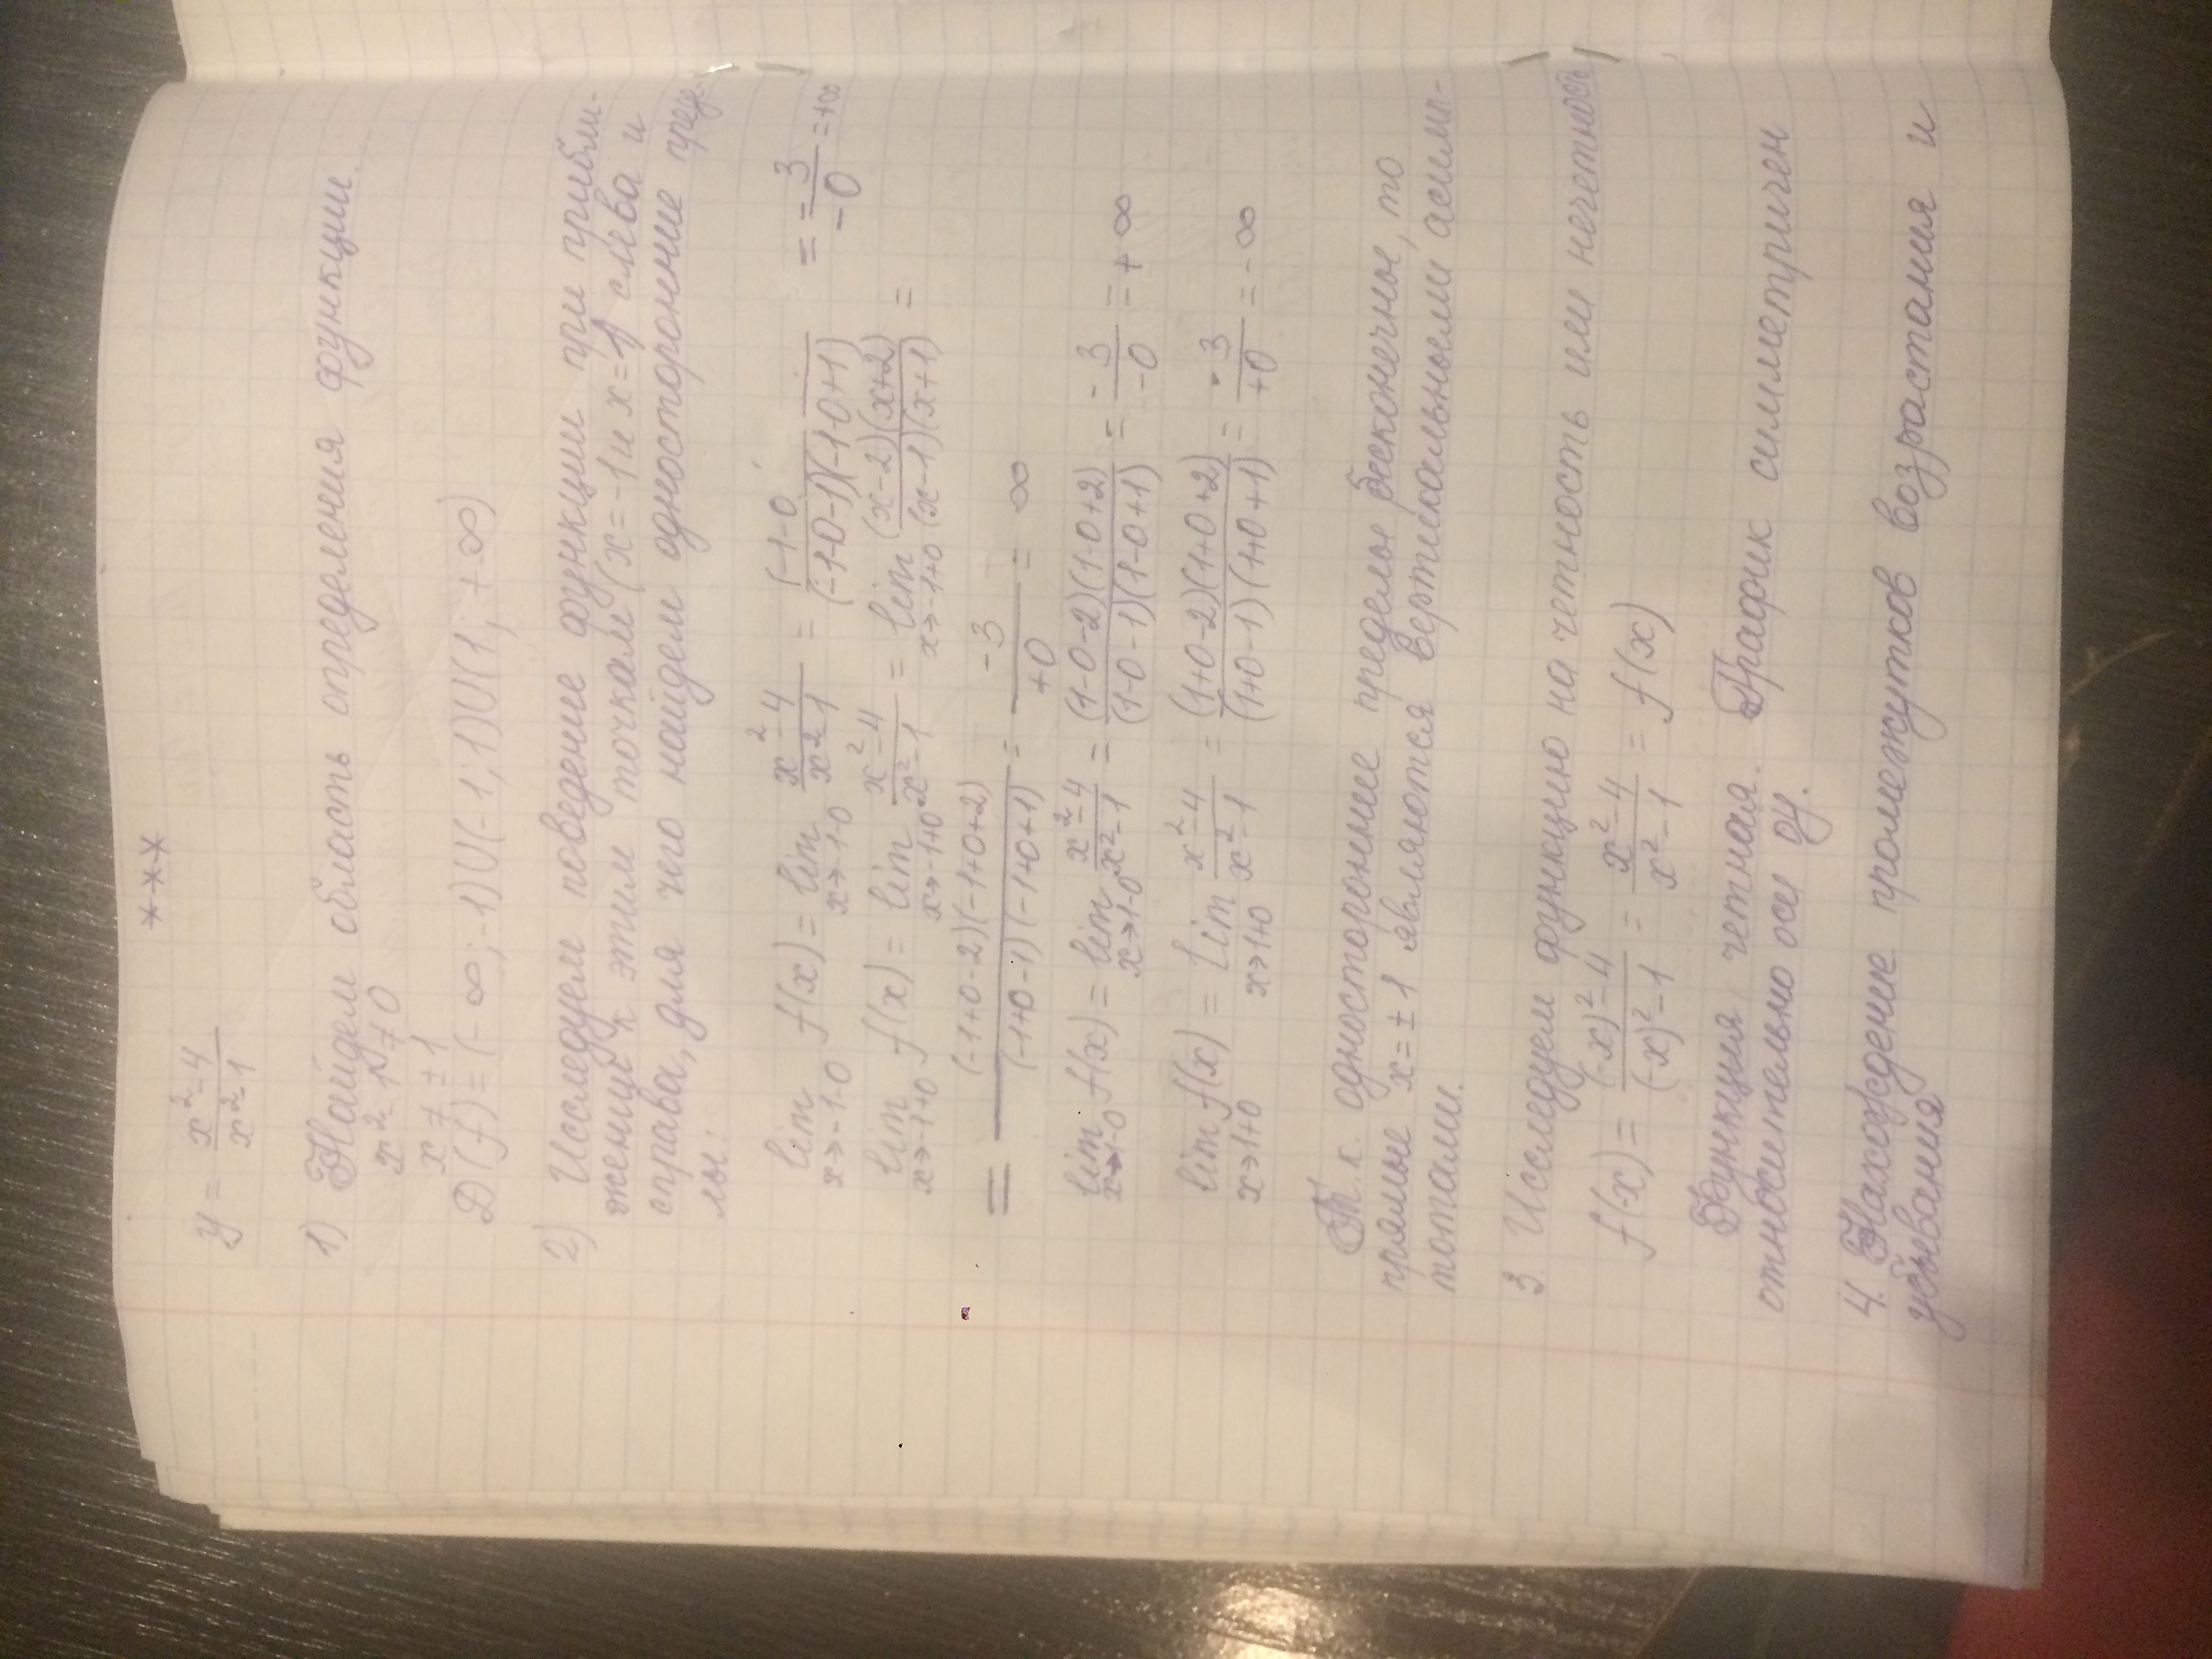 ***
y = (x² - 4)/(x² - 1)
1) Найдем область определения функции.
x² - 1 ≠ 0
x ≠ ± 1
D(f) = (- ∞; -1) U (-1; 1) U (1; + ∞)
2) Исследуем поведение функции при прибли-
жении к этим точкам (x = -1 и x = 1) слева и
справа, для чего найдем односторонние преде-
лы:
lim x→-1-0 f(x) = lim x→-1-0 (x² - 4)/(x² - 1) = (-1-0 /(-1-0-1)(-1-0+1) = = -3/-0 = +∞
lim x→-1+0 f(x) = lim x→-1+0 (x² - 4)/(x² - 1) = lim x→-1+0 (x-2)(x+2)/(x-1)(x+1) =
= (-1+0-2)(-1+0+2)/(-1+0-1)(-1+0+1) = -3/+0 = ∞
lim x→-0 f(x) = lim x→1-0 (x² - 4)/(x² - 1) = (1-0-2)(1-0+2)/(1-0-1)(1-0+1) = -3/-0 = +∞
lim x→1+0 f(x) = lim x→1+0 (x² - 4)/(x² - 1) = (1+0-2)(1+0+2)/(1+0-1)(1+0+1) = -3/+0 = -∞
Т.к. односторонние пределы бесконечные, то
прямые x = ± 1 являются вертикальными асимп-
тотами.
3. Исследуем функцию на четность или нечетность
f(-x) = ((-x)² - 4)/((-x)² - 1) = (x² - 4)/(x² - 1) = f(x)
Функция четная. График симметричен
относительно оси oy.
4. Нахождение промежутков возрастания и
убывания